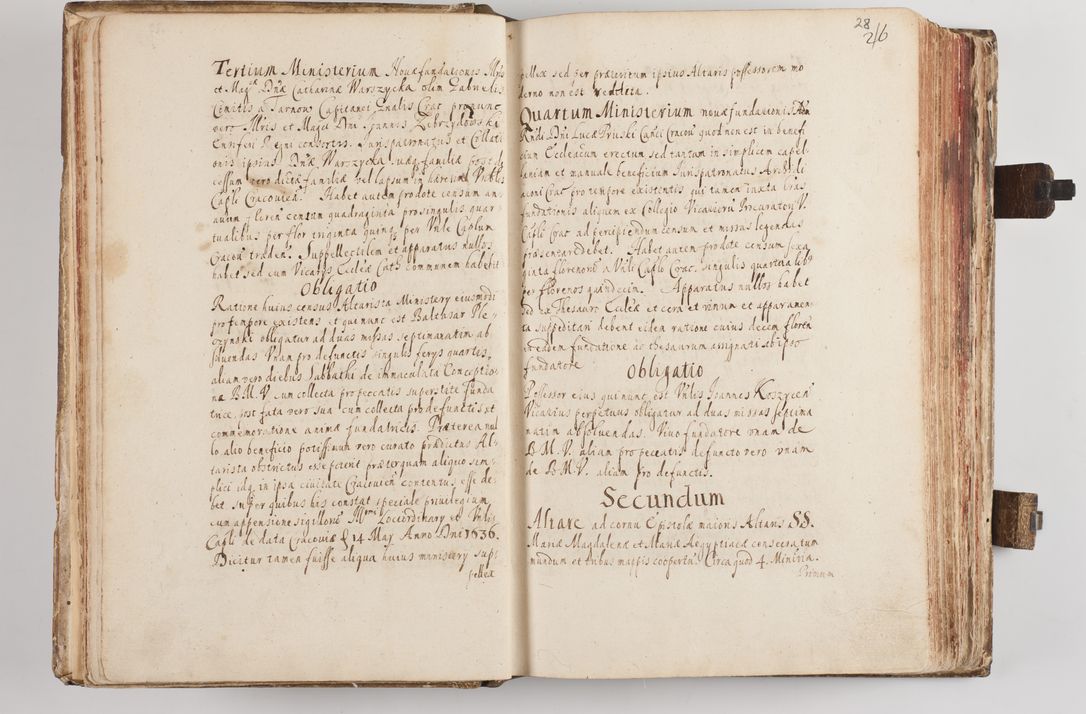 Tertium Ministerium Novæ fundationis Mris
et Magcæ Dnæ Catharinæ Warszycka olim Gabrielis
Comitis a Tarnow Capitanei Cracovien
vero Mris et Magci Dni Joannis Zebrzydowski
Ensiferi Regni consortis. Jurispatronatus et Collati
onis ipsius Dnæ Warszycka suæq; familiæ post de
cessum vero dictæ familiæ vel lapsum in hæresim Vnlis
Capli Cracovien. Habet autem pro dote censum an
nuum floren centum quadraginta pro singulis quar
tualibus per flor triginta quinq; per Vnle Caplum
Cracovi traden. Suppellectilem et apparatus nullos
habet sed cum Vicariis Ecclæ Cath communem habebit
Obligatio
Ratione huius census Altarista Ministery eiusmodi
pro tempore existens et qui nunc est Balthsar
czynski obligatur ad duas missas septimanatim ab
soluendas Vnam pro defunctis singulis ferys quartis,
aliam vero diebus Sabbathi de immaculata Conceptio
ne B.M.V. cum collecta pro peccatis superstite funda
trice, post fata vero sua cum collecta pro defunctis et
commemoratione animæ fundatricis. Præterea nul
lo alio beneficio potissimum vero curato prædictus Al
tarista obstrictus esse poterit præterquam aliquo sem
plici idq; in ipsa civitate Cracovien contentus esse de
bet. Super quibus his constat speciale privilegium
cum appensione sigillorum Loci ordinary et Vnlis
Capli de data Cracoviæ 14 May Anno Dni 1636.
Dicitur tamen fuisse aliqua huius ministery sup
pellex
28
216
pellex sed per præteritum ipsius Altaris possessorem mo
derno non est reddita.
Quartum Ministerium novæ fundationi
Rndi Dni Lucæ Pruski Canci Cracov quod non est in benefi
cium Ecclesicum erectum sed tantum in simplicem capel
laniam et manuale beneficium Jurispatronatus Archidi
aconi Crac pro tempore existentis qui tamen iuxta tras
fundationis aliquem ex Collegio Vicariorum Procuratori V.
Capli Crac ad percipiendum censum et missas legendas
præsentare debet. Habet autem pro dote censum sexa
ginta florenorum a Vnli Caplo Crac. singulis quartualib9
per florenos quindecim. Apparatus nullos habet
sed ex Thesauro Ecclæ et cera et vinum et apparamen
ta suppeditari debent eidem ratione cuius decem floren
in eadem fundatione in thesaurum assignati sub ipso
fundatore
Obligatio
Possessor eius qui nunc est Vnlis Joannes Koszycen
Vicarius perpetuus obligatur ad duas missas septima
natim absolvendas. Vivo fundatore vnam de
B.M.V. aliam pro peccatis defuncto vero vnam
de B.M.V. aliam pro defunctis.
Secundum
Altare ad cornu Epistolæ maioris Altaris SS.
Mariæ Magdalenæ et Mariæ Aegyptiacæ consecratum
mundum et tribus mappis coopertu. Circa quod 4. Minria.
Primum